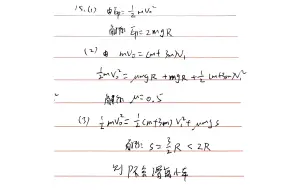 15.(1) 由Ep=½mv₀²
解得 Ep=2mgR
(2) 由 mv₀=(m+3m)v₁
½mv₀²=μmgR+mgR+½(m+3m)v₁²
解得 μ=0.5
(3) ½mv₀²=½(m+3m)v₁²+μmgs
解得: s=3/2R<2R
滑 小车